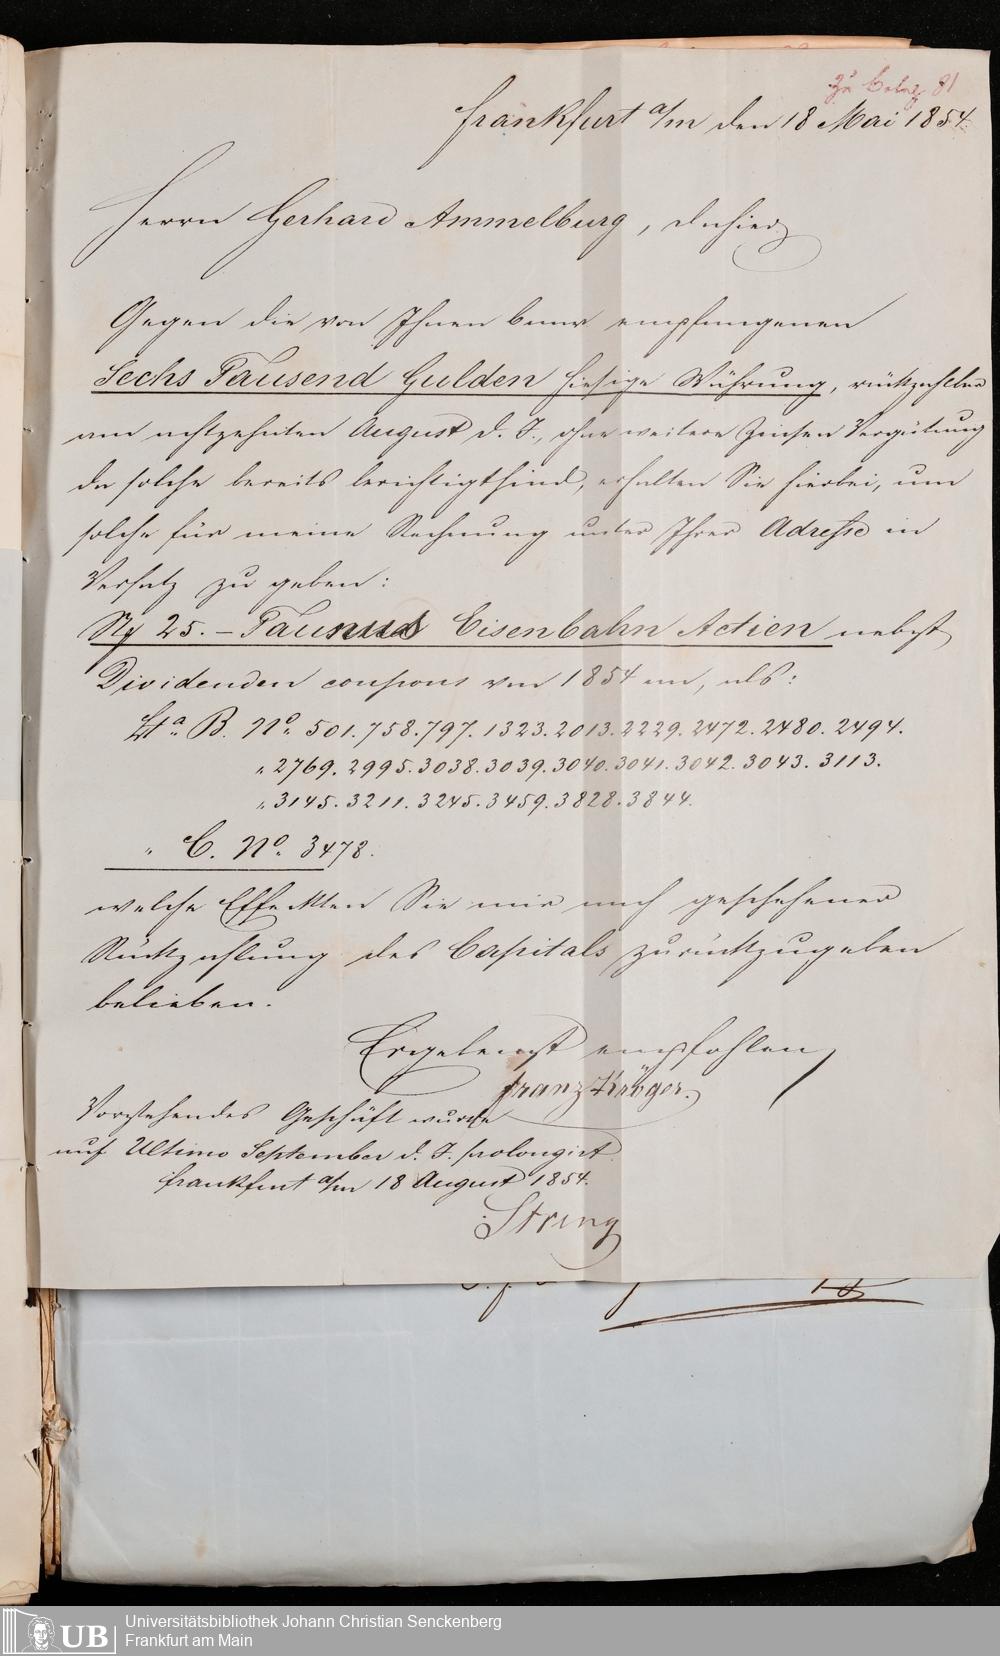 zu Beleg 81
Frankfurt a/m den 18 Mai 1854.
Herrn Gerhard Ammelburg, dahier
Gegen die von Ihnen baar empfangenen
Sechs Tausend Gulden hiesige Währung, rückzahlbar
am achtzehnten August d. J., ohne weitere Zinsen Vergütung
da solche bereits berichtigt sind, erhalten Sie hierbei, um
solche für meine Rechnung unter Ihrer Adresse in
Versatz zu geben:
25. – Taunus Eisenbahn Actien nebst
Dividenden coupons von 1854 an, als:
Lta. B. No. 501. 758. 797. 1323. 2013. 2229. 2472. 2480. 2494.
" 2769. 2995. 3038. 3039. 3040. 3041. 3042. 3043. 3113.
" 3145. 3211. 3245. 3459. 3828. 3844.
" C. No. 3478.
welche Effeckten Sie mir nach geschehener
Rückzahlung des Capitals zurückzugeben
belieben.
Ergebenst empfohlen
Franz Kröger.
Vorstehendes Geschäft wurde
auf Ultimo September d. J. prolongirt.
Frankfurt a/m 18 August 1854.
UB
Universitätsbibliothek Johann Christian Senckenberg
Frankfurt am Main